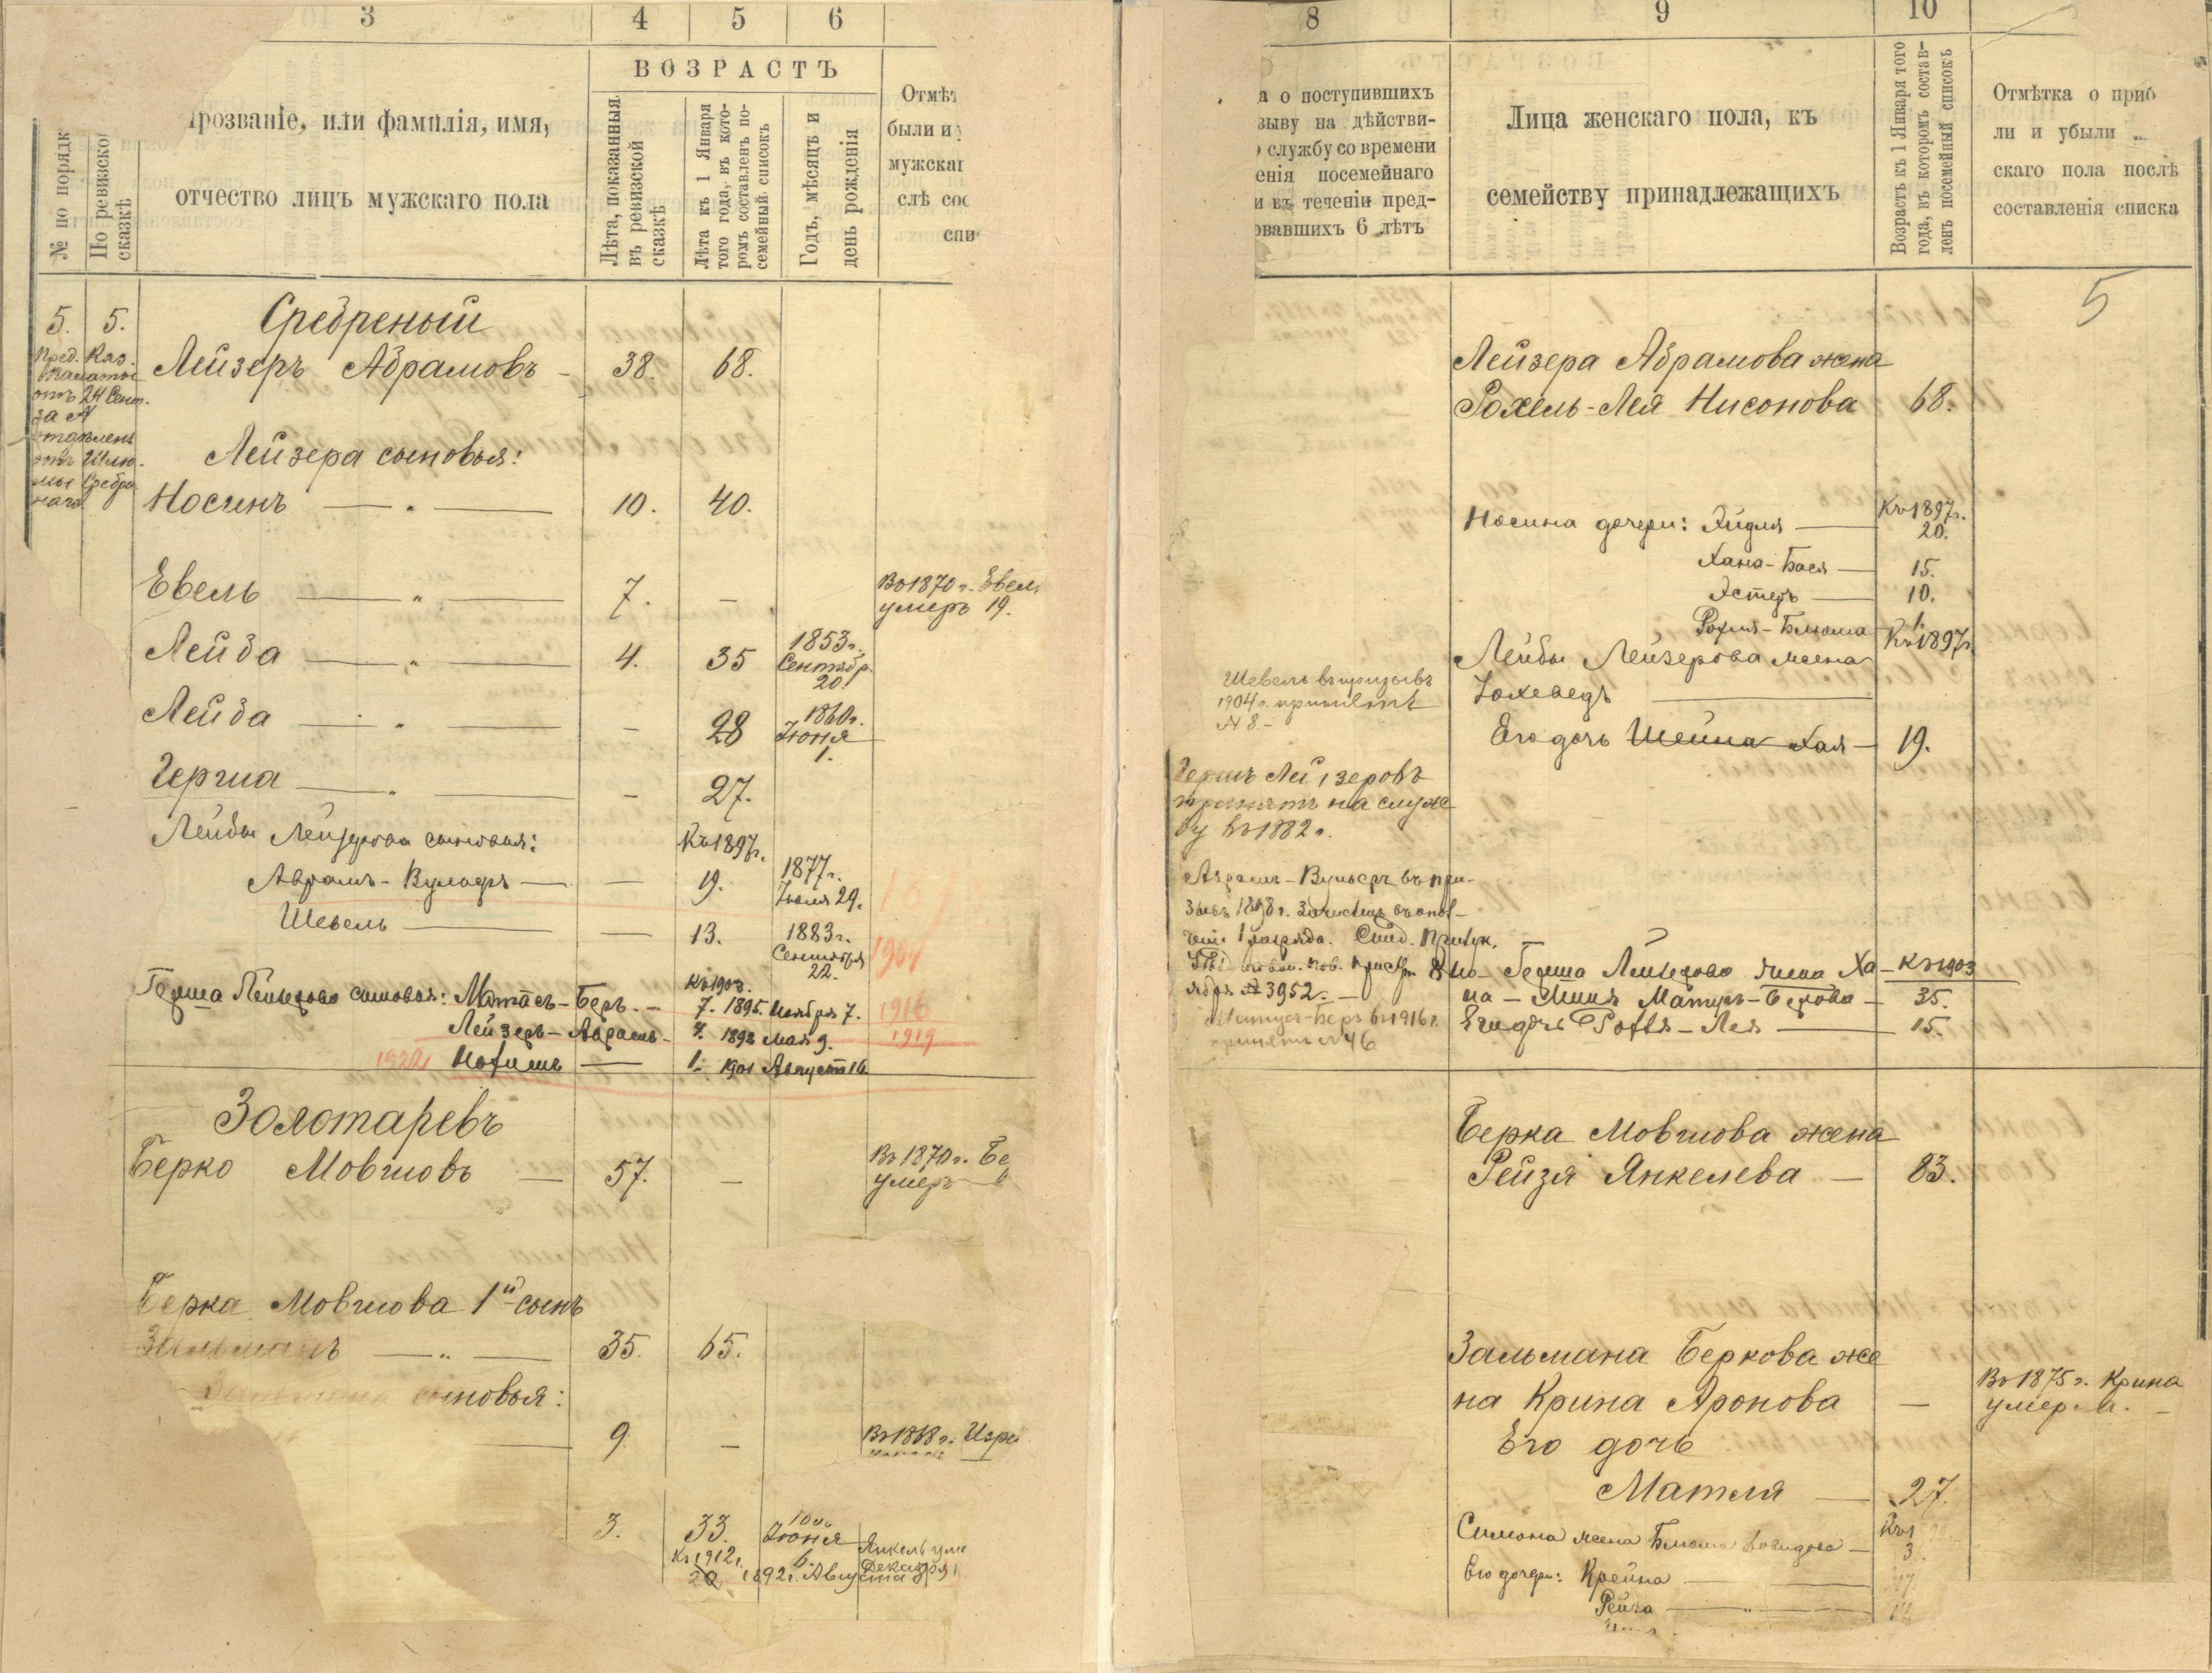 3 4 5 6
ВОЗРАСТЪ
№ по порядк
По ревизско
сказкѣ
розваніе, или фамилія, имя,
отчество лицъ мужскаго пола
Лѣта, показанныя
въ ревизской
сказкѣ
Лѣта къ 1 Января
того года, въ кото-
ромъ составленъ по-
семейный списокъ
Годъ, мѣсяцъ и
день рожденія
Отмѣт
были и у
мужскаг
слѣ сос
спи
5. 5. Сребреный
Лейзеръ Абрамовъ - 38. 68.
Пред. Каз.
Палаты
отъ 24 Сент.
за №
отъ Шлю-
мы Сребре
наго
Лейзера сыновья:
Носинъ 10. 40.
Евель 7. - Въ 1870 г. Евел
умеръ 19.
Лейба 4. 35 1853 г.
Сентябр.
20.
Лейба - 28 1860 г.
Іюня
1.
Герша - 27.
Лейбы Лейзерова сыновья: Къ 1897 г.
Аврамъ-Вульфъ - 19. 1877 г.
Іюля 29.
Шевель - 13. 1883 г.
Сентября
22.
1904
Къ 1903.
Герша Лейзерова сыновья: Матасъ-Беръ. - 7. 1895. Ноября 7. 1916
Лейзеръ-Аврамъ - 4. 1898 Мая 9. 1919
1922 Нохимъ 1. 1901 Августа 16
Золотаревъ
Берко Мовшовъ - 57. - Въ 1870 г. Бе
умеръ
Берка Мовшова 1й сынъ
Зальманъ 35. 65.
Зальмана сыновья:
9. - Въ 1868 г. Изра
3. 33. Іюня
6.
Къ 1912 г.
20 1892 г. Августа
Янкель уме
Декабря
8 9 10
а о поступившихъ
зыву на дѣйстви-
службу со времени
енія посемейнаго
и въ теченіи пред-
овавшихъ 6 лѣтъ
Лица женскаго пола, къ
семейству принадлежащихъ
Возрастъ къ 1 Января того
года, въ которомъ состав-
ленъ посемейный списокъ
Отмѣтка о приб
ли и убыли
скаго пола послѣ
составленія списка
5
Лейзера Абрамова жена
Рохель-Лея Нисонова 68.
Носина дочери: Эйдля Къ 1897 г.
20.
Хана-Бася 15.
Эстеръ 10.
Рохля-Блюма 1.
Лейбы Лейзерова жена Къ 1897 г.
Іохеведъ
Его дочь Шейна Хая 19.
Шевель въ призывъ
1904 г. принятъ
№ 8 -
Гершъ Лейзеровъ
принятъ на служ
бу въ 1882 г.
Аврамъ-Вульфъ въ при-
зывъ 1898 г. зачисленъ въ опол-
ченіе 1 разряда. Свид.
ября № 3952. -
Герша Лейзерова жена Ха- Къ 1903
на-Миня Матусъ-Берова - 35.
Его дочь Рохля-Лея 15.
Матусъ-Беръ въ 1916 г.
принятъ № 46
Берка Мовшова жена
Рейзя Янкелева - 83.
Зальмана Беркова же
на Крина Аронова - Въ 1875 г. Крина
умерла. -
Его дочь
Матля - 27.
Симона жена Блюма Довидова - Къ 1
3
Его дочери: Крейна
Рейза